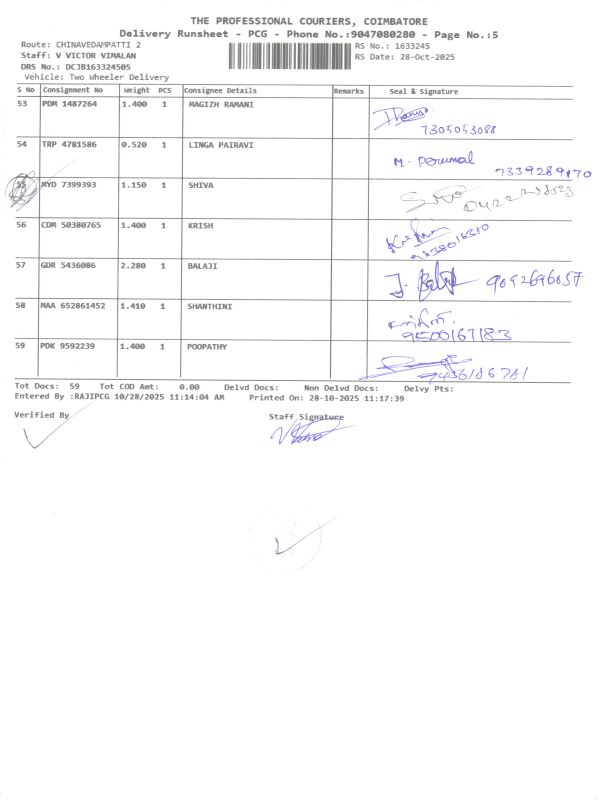 THE PROFESSIONAL COURIERS, COIMBATORE
Delivery Runsheet - PCG - Phone No.:9047080280 - Page No.:5
Route: CHINAVEDAMPATTI 2
RS No.: 1633245
Staff: V VICTOR VIMALAN
RS Date: 28-Oct-2025
DRS No.: DCJB163324505
Vehicle: Two Wheeler Delivery
S No Consignment No Weight PCS Consignee Details Remarks Seal & Signature
53 PDM 1487264 1.400 1 MAGIZH RAMANI
7305053088
54 TRP 4781586 0.520 1 LINGA PAIRAVI
M. Perumal
7339289170
55 MYD 7399393 1.150 1 SHIVA
56 CDM 50380765 1.400 1 KRISH
57 GDR 5436086 2.280 1 BALAJI
9092696057
58 MAA 652861452 1.410 1 SHANTHINI
9500167183
59 PDK 9592239 1.400 1 POOPATHY
Tot Docs: 59 Tot COD Amt: 0.00 Delvd Docs: Non Delvd Docs: Delvy Pts:
Entered By :RAJIPCG 10/28/2025 11:14:04 AM Printed On: 28-10-2025 11:17:39
Verified By Staff Signature